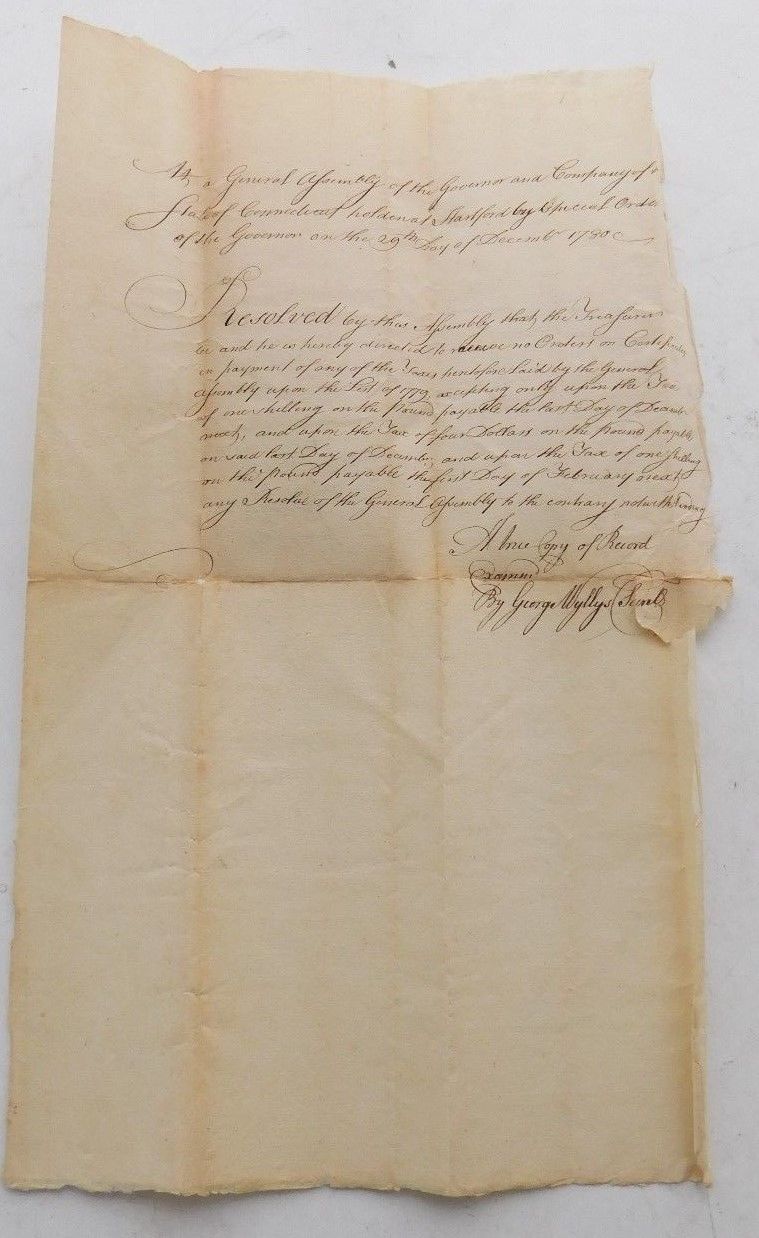 At a General Assembly of the Governor and Company of
State of Connecticut holden at Hartford by Special Order
of the Governor on the 29th Day of Decembr 1780
Resolved by this Assembly that the Treasurer
be and he is hereby directed to receive no Orders or Certificates
in payment of any of the Taxes heretofore laid by the General
Assembly upon the List of 1779, excepting only upon the Tax
of one shilling on the Pound payable the last Day of Decembr
next, and upon the Tax of four Dollars on the Pound payable
on said last Day of December, and upon the Tax of one shilling
on the Pound payable the first Day of February next
any Resolve of the General Assembly to the contrary notwithstanding
A true Copy of Record
Examind
By George Wyllys Secretr